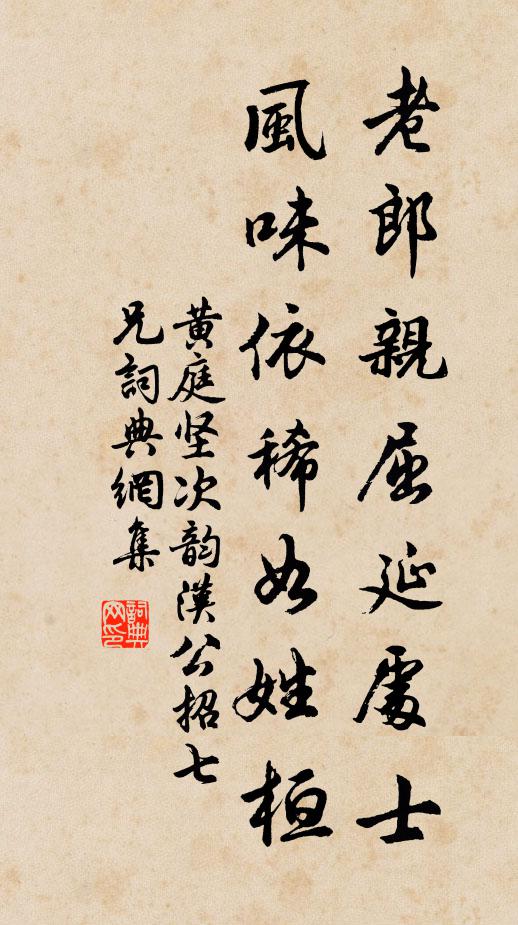 老郎親屈延處士
風味依稀如姓桓
黃庭坚次韵漢公招七
兄詞典網集
詞典
网印